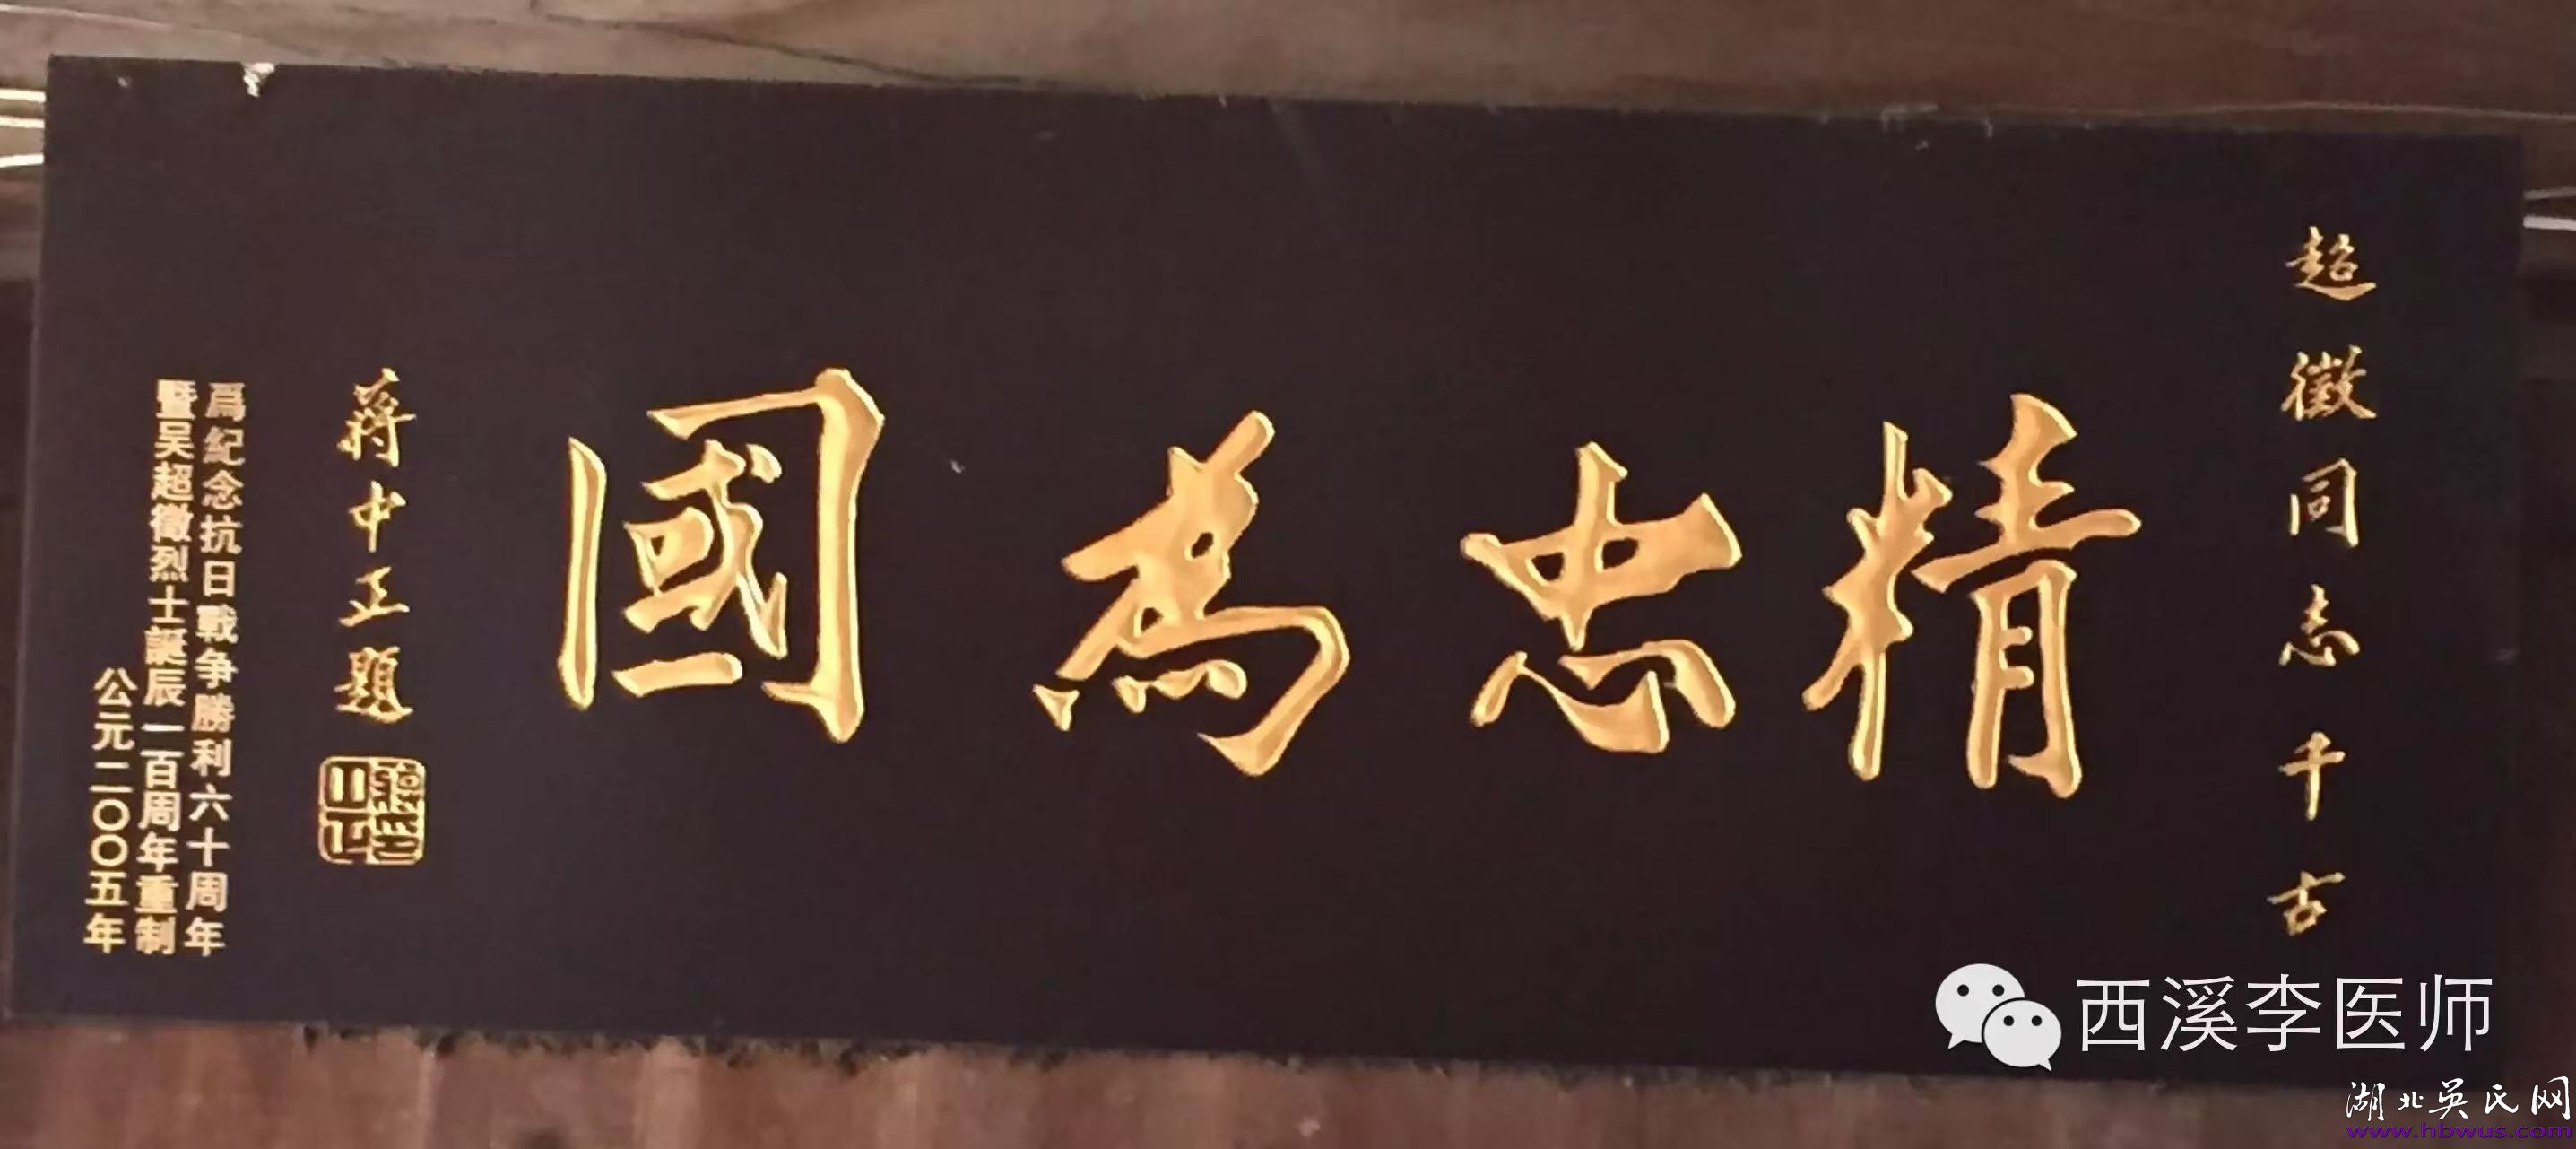 超徵同志千古
精忠為國
蔣中正題
爲紀念抗日戰争勝利六十周年
暨吴超徵烈士誕辰一百周年重制
公元二〇〇五年
西溪李医师
湖北吴氏网
www.hbwus.com